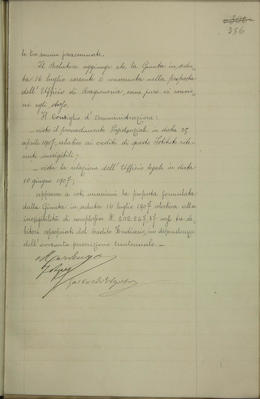 256
le Economie preaccennate.
Il Relatore aggiunge che la Giunta in sedu-
ta 16 luglio corrente è convenuta nella proposta
dell'Ufficio di Ragioneria, come pure vi convie-
ne egli stesso.
Il Consiglio d'Amministrazione:
- visto il provvedimento Presidenziale in data 25
aprile 1907, relativo ai crediti di questo Istituto rite-
nuti inesigibili;
- vista la relazione dell'Ufficio legale in data
10 giugno 1907;
approva a voti unanimi la proposta formulata
dalla Giunta in seduta 16 luglio 1907 relativa alla
inesigibilità di complessive
debitori espropriati del Credito Fondiario, in dipendenza
dell'avvenuta prescrizione trentennale.